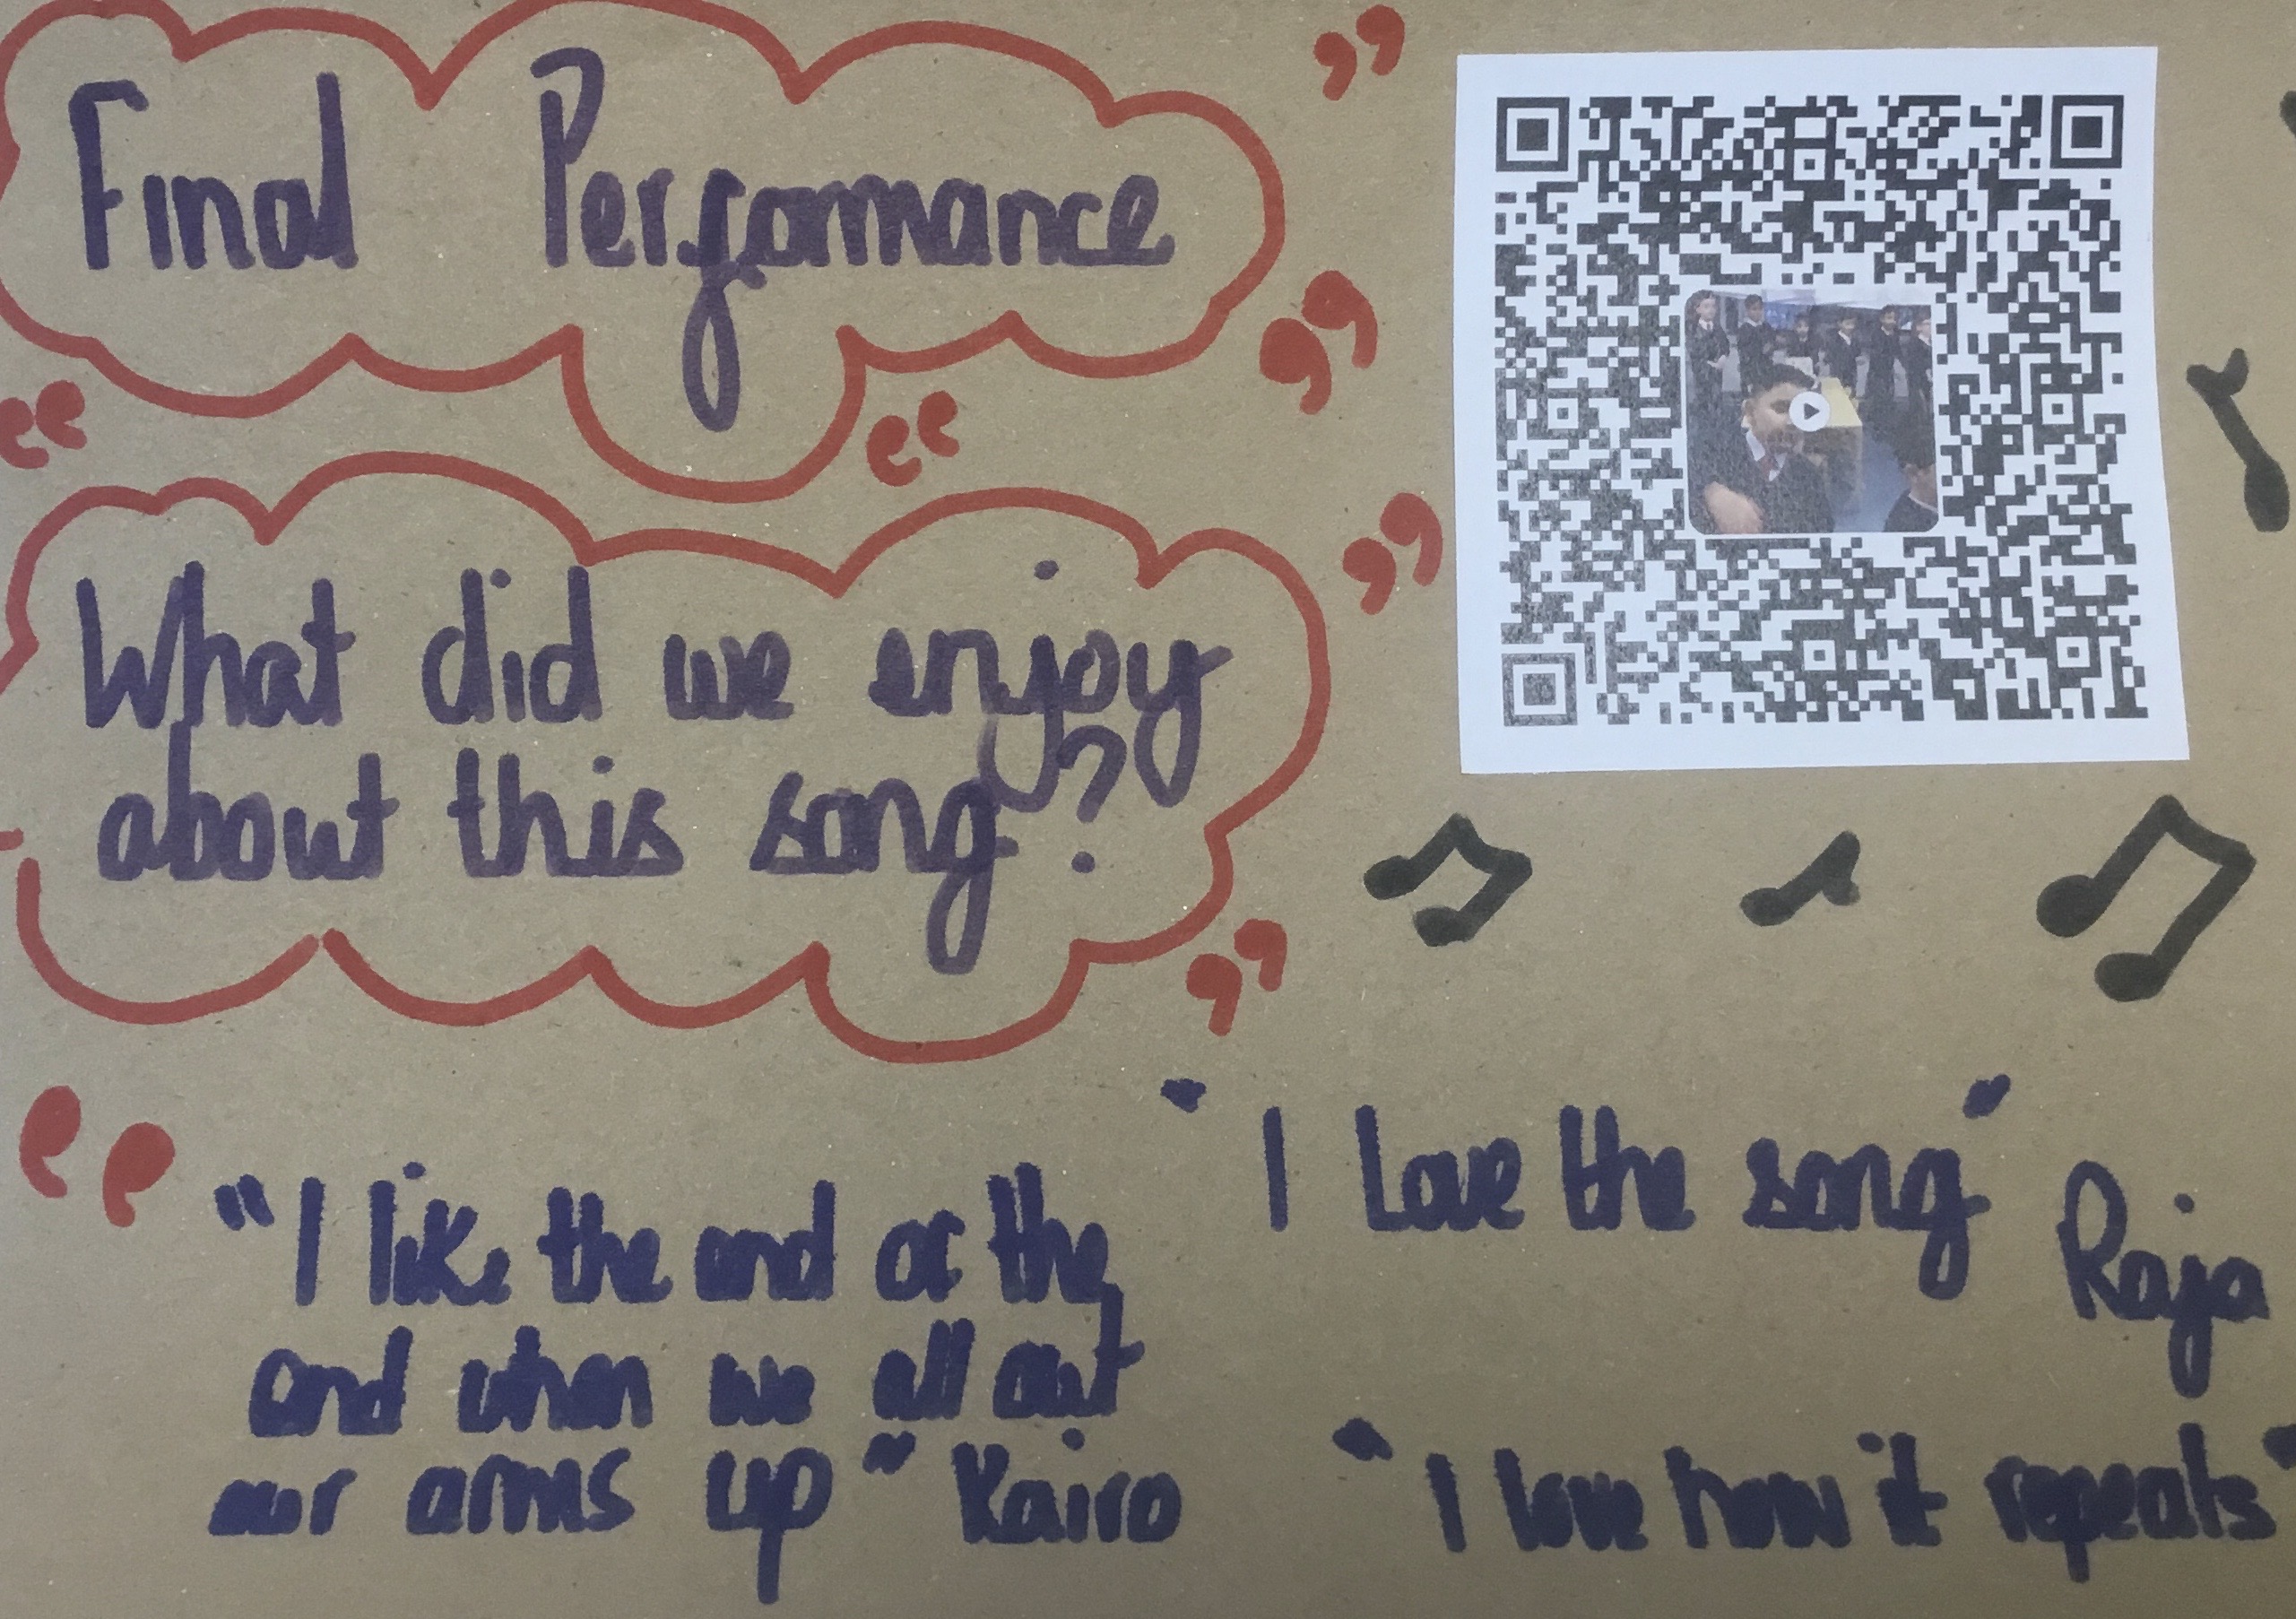 Final Performance
What did we enjoy
about this song?
"I like the end of the
and when we all out
our arms up" Kairo
"I love the song"
Raja
"I love how it repeats"